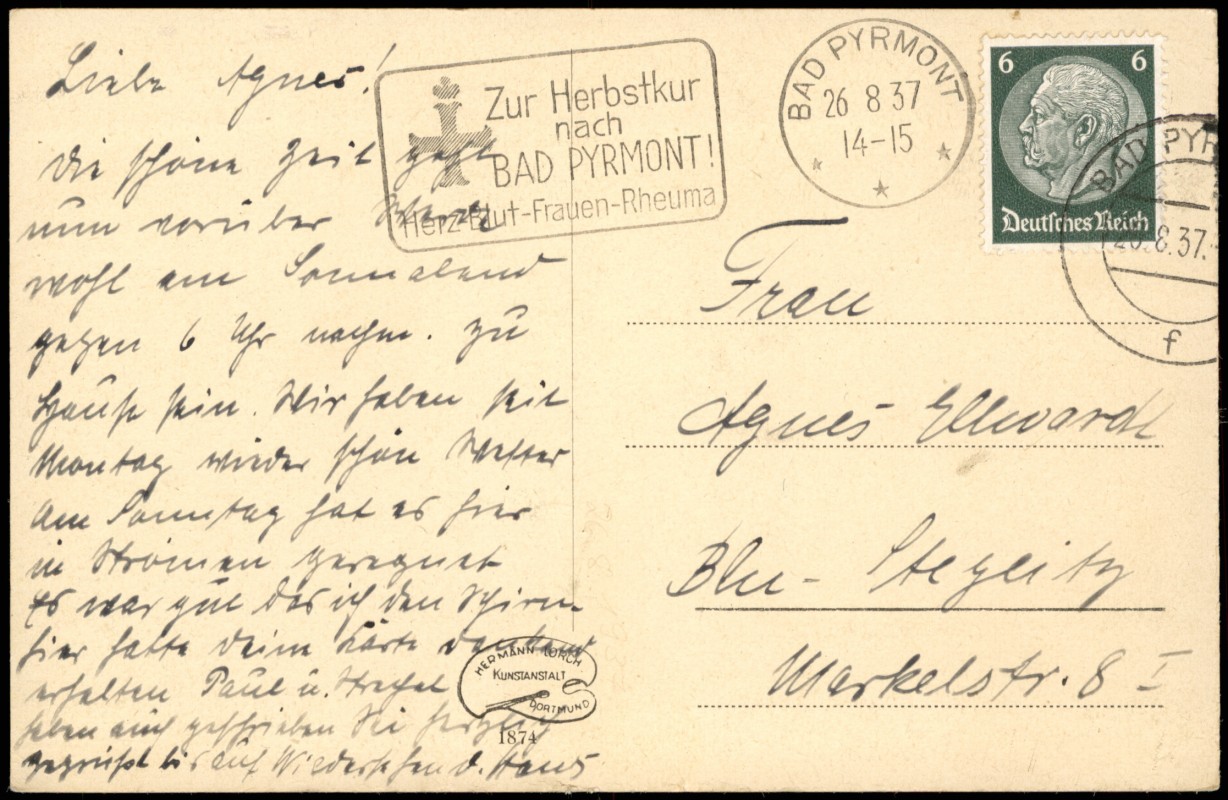 Liebe Agnes!
die schöne Zeit geht
nun vorüber
wohl am Sonnabend
gegen 6 Uhr nachm. zu
Hause sein. Wir haben seit
Montag wieder schön Wetter
Am Sonntag hat es hier
in Strömen geregnet
Es war gut das ich den Schirm
hier hatte deine Karte dankend
erhalten Paul u.
haben auch geschrieben Sei herzlich
gegrüßt bis auf Wiedersehen d. Hans
Zur Herbstkur
nach
BAD PYRMONT!
Herz-Blut-Frauen-Rheuma
BAD PYRMONT
26 8 37
14-15
6 6
Deutsches Reich
BAD PYR
.8.37.
f
Frau
Agnes Ellwardt
Bln- Steglitz
Markelstr. 8 I
HERMANN LORCH
KUNSTANSTALT
DORTMUND
1874